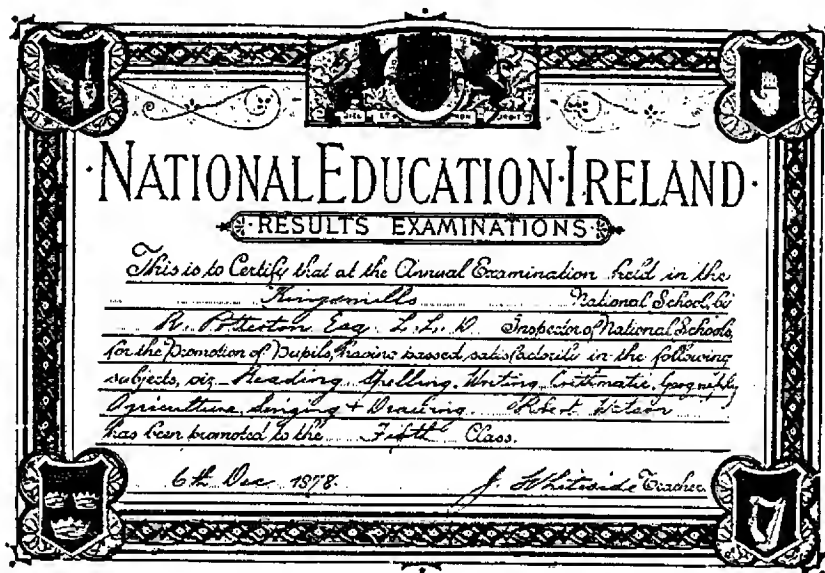 NATIONAL EDUCATION·IRELAND
RESULTS EXAMINATIONS
This is to Certify that at the Annual Examination held in the
Kingsmills National School, by
R. Potterton Esq. L.L.D. Inspector of National Schools,
for the Promotion of Pupils, having passed satisfactorily in the following
subjects, viz – Reading, Spelling, Writing, Arithmatic, Geography
Agriculture, Singing + Drawing. Robert Watson
has been promoted to the Fifth Class.
6th Dec 1878. J. Whiteside Teacher.